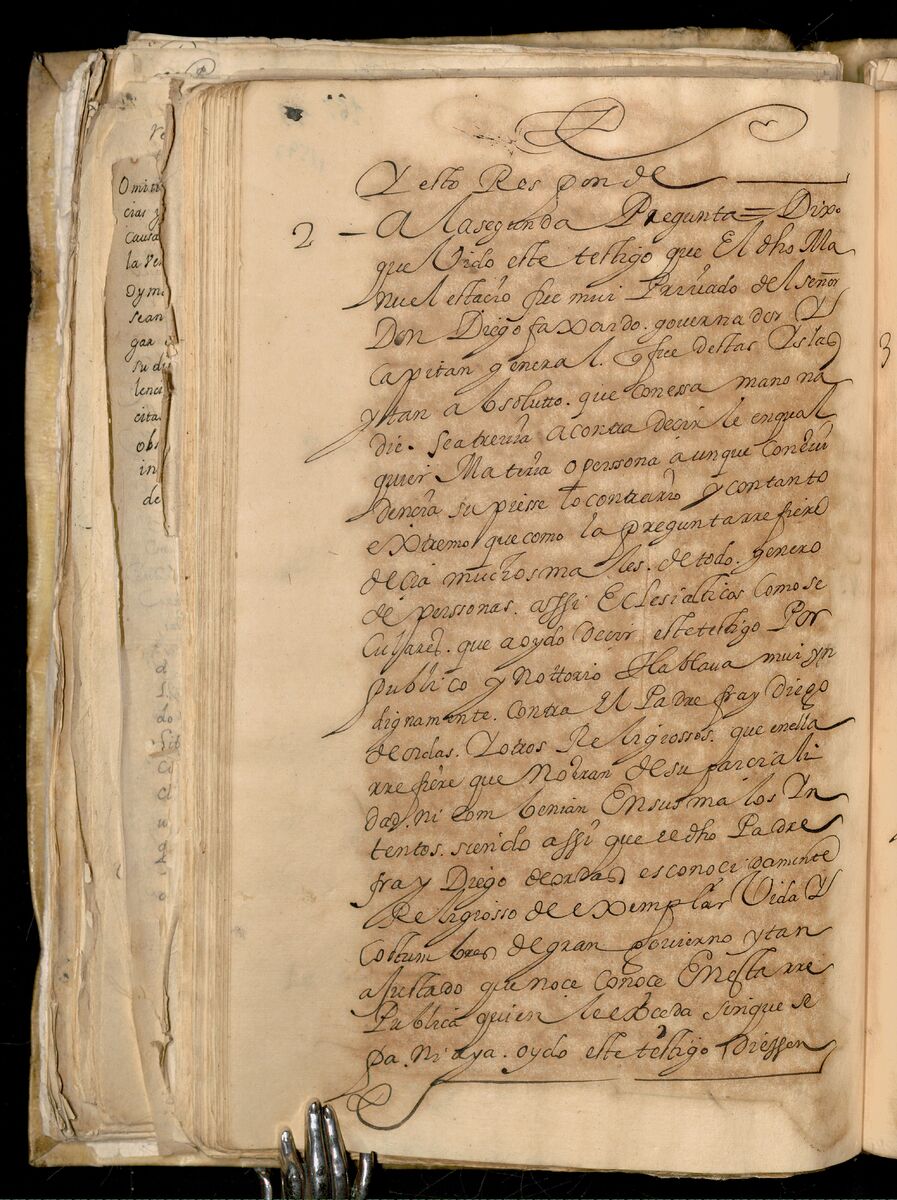 Omiti
cias y
Causa
la Ver
sean
gar
su di
lenci
cita
obs
in
de
Y esto Responde
2 - A la segunda Pregunta = Dixo
que Vido este testigo que El dho Ma
nuel estacio fue mui Privado del señor
Don Diego faxardo. governador Y
Capitan general. q fue destas Yslas
y tan absolutto. que Con essa mano na
die. se atrevia a contradecir le en qual
quier Materia o perssona aunque Con evi
dencia supiesse lo contrario y con tanto
extremo que como la pregunta rrefiere
decia muchos males. de todo. genero
de perssonas. assi Eclesiasticas Como se
Culares. que a oydo decir este testigo Por
publico y Nottorio Hablava mui yn
dignamente. Contra El Padre fray Diego
de ordas. Y otros Religiossos. que en ella
rrefiere que No eran de su parciali
dad. ni Combenian En sus malos Yn
tentos. siendo assi que el dho Padre
fray Diego de ordas es conocidamente
Religiosso de exemplar Vida Y
Costumbres de gran govierno y tan
ajustado que no ce Conoce En esta rre
Publica quien le exceda sin que se
pa. Ni aya. oydo este testigo Diessen
3